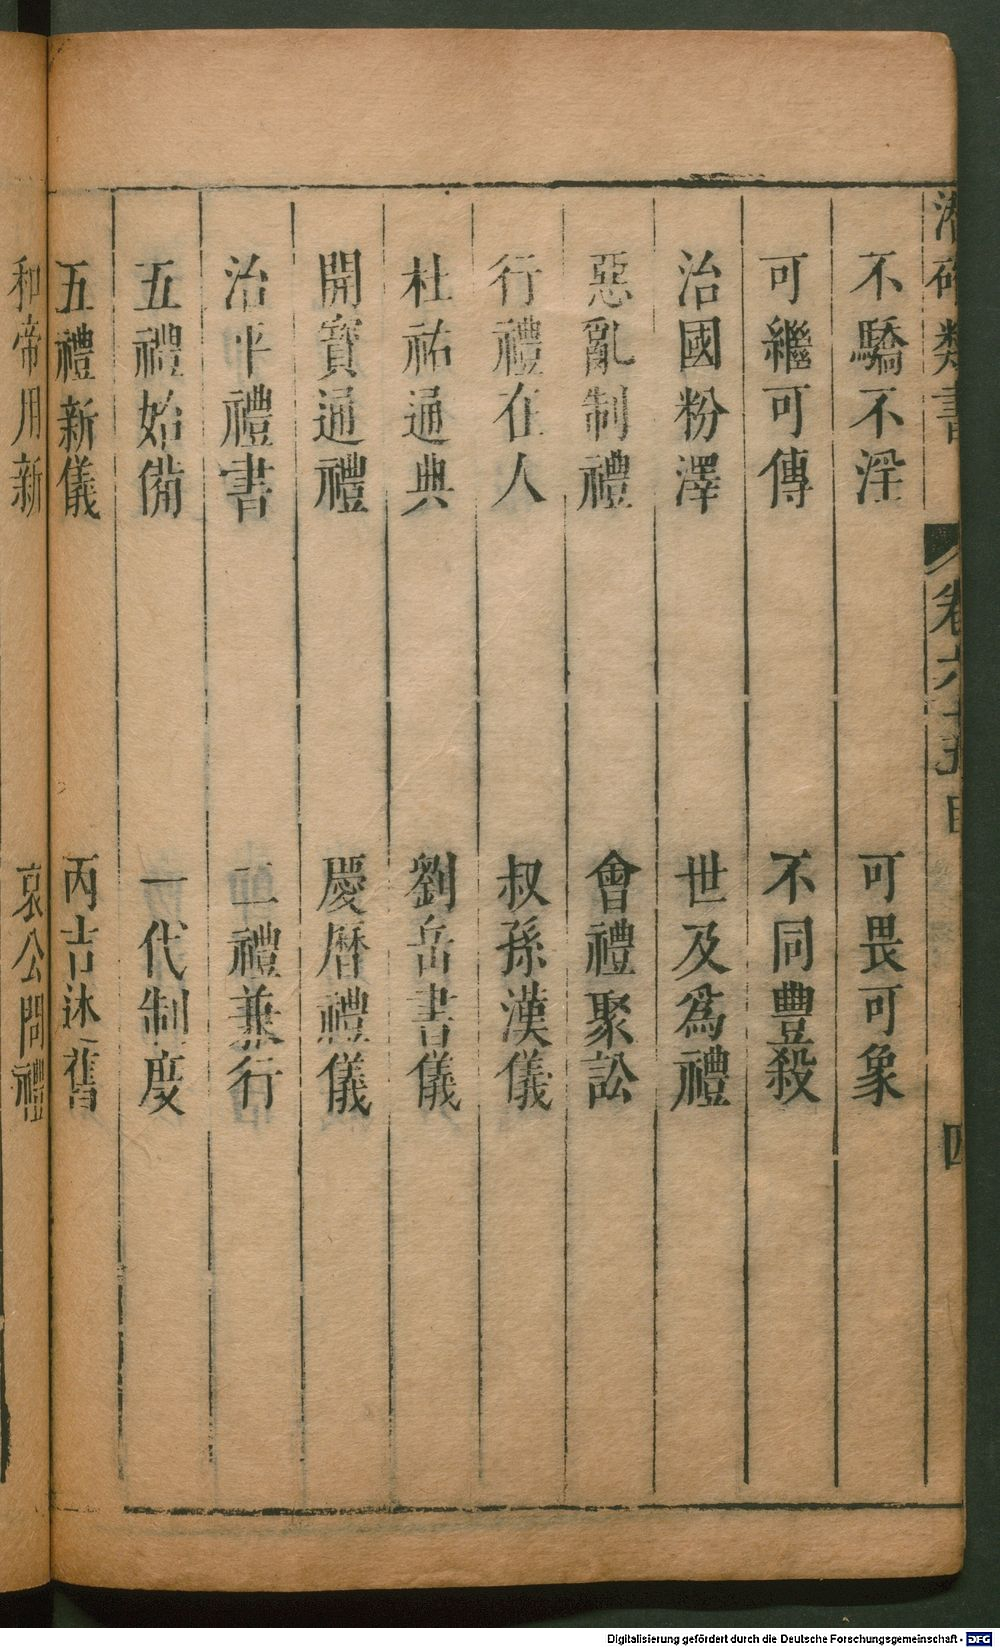 潛確類書 卷六十五目 四
不驕不淫 可畏可象
可繼可傳 不同豊殺
治國粉澤 世及為禮
惡亂制禮 會禮聚訟
行禮在人 叔孫漢儀
杜祐通典 劉岳書儀
開寳通禮 慶曆禮儀
治平禮書 二禮兼行
五禮始備 一代制度
五禮新儀 丙吉沭舊
和帝用新 哀公問禮
Digitalisierung gefördert durch die Deutsche Forschungsgemeinschaft - DFG